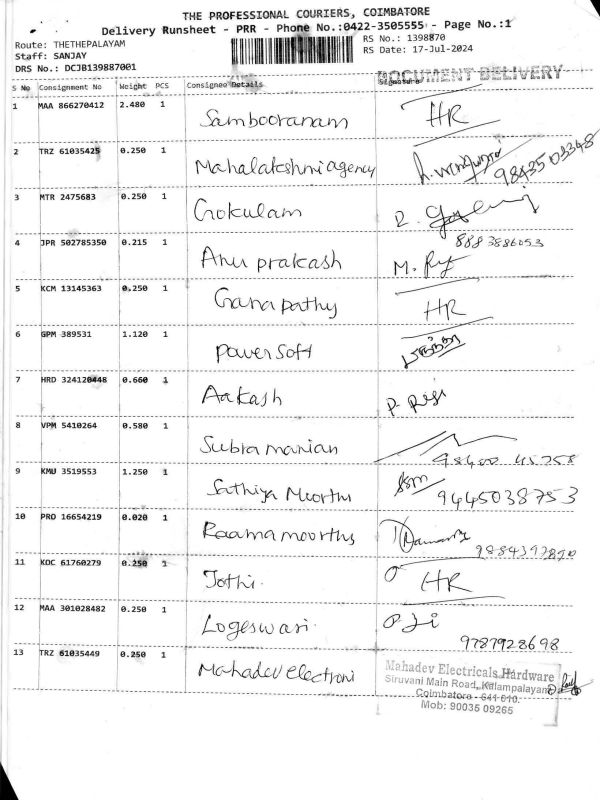 THE PROFESSIONAL COURIERS, COIMBATORE
Delivery Runsheet - PRR - Phone No.:0422-3505555 - Page No.:1
Route: THETHEPALAYAM
RS No.: 1398870
Staff: SANJAY
RS Date: 17-Jul-2024
DRS No.: DCJB139887001
DOCUMENT DELIVERY
S No Consignment No Weight PCS Consignee Details Signature
1 MAA 866270412 2.480 1 Sambooranam HR
2 TRZ 61035425 0.250 1 Mahalakshmi agency
3 MTR 2475683 0.250 1 Gokulam
8883886053
4 JPR 502785350 0.215 1 Anu prakash
5 KCM 13145363 0.250 1 Ganapathy HR
6 GPM 389531 1.120 1 Powersoft
7 HRD 324120448 0.660 1 Aakash
8 VPM 5410264 0.580 1 Subramanian
9 KMU 3519553 1.250 1 Sathiya Moorthi 9445038753
10 PRO 16654219 0.020 1 Raamamoorthy
11 KOC 61760279 0.250 1 Jothi. HR
12 MAA 301028482 0.250 1 Logeswari.
9787928698
13 TRZ 61035449 0.250 1 Mahadev electroni
Mahadev Electricals Hardware
Siruvani Main Road, Kalampalayam
Coimbatore - 641 010.
Mob: 90035 09265